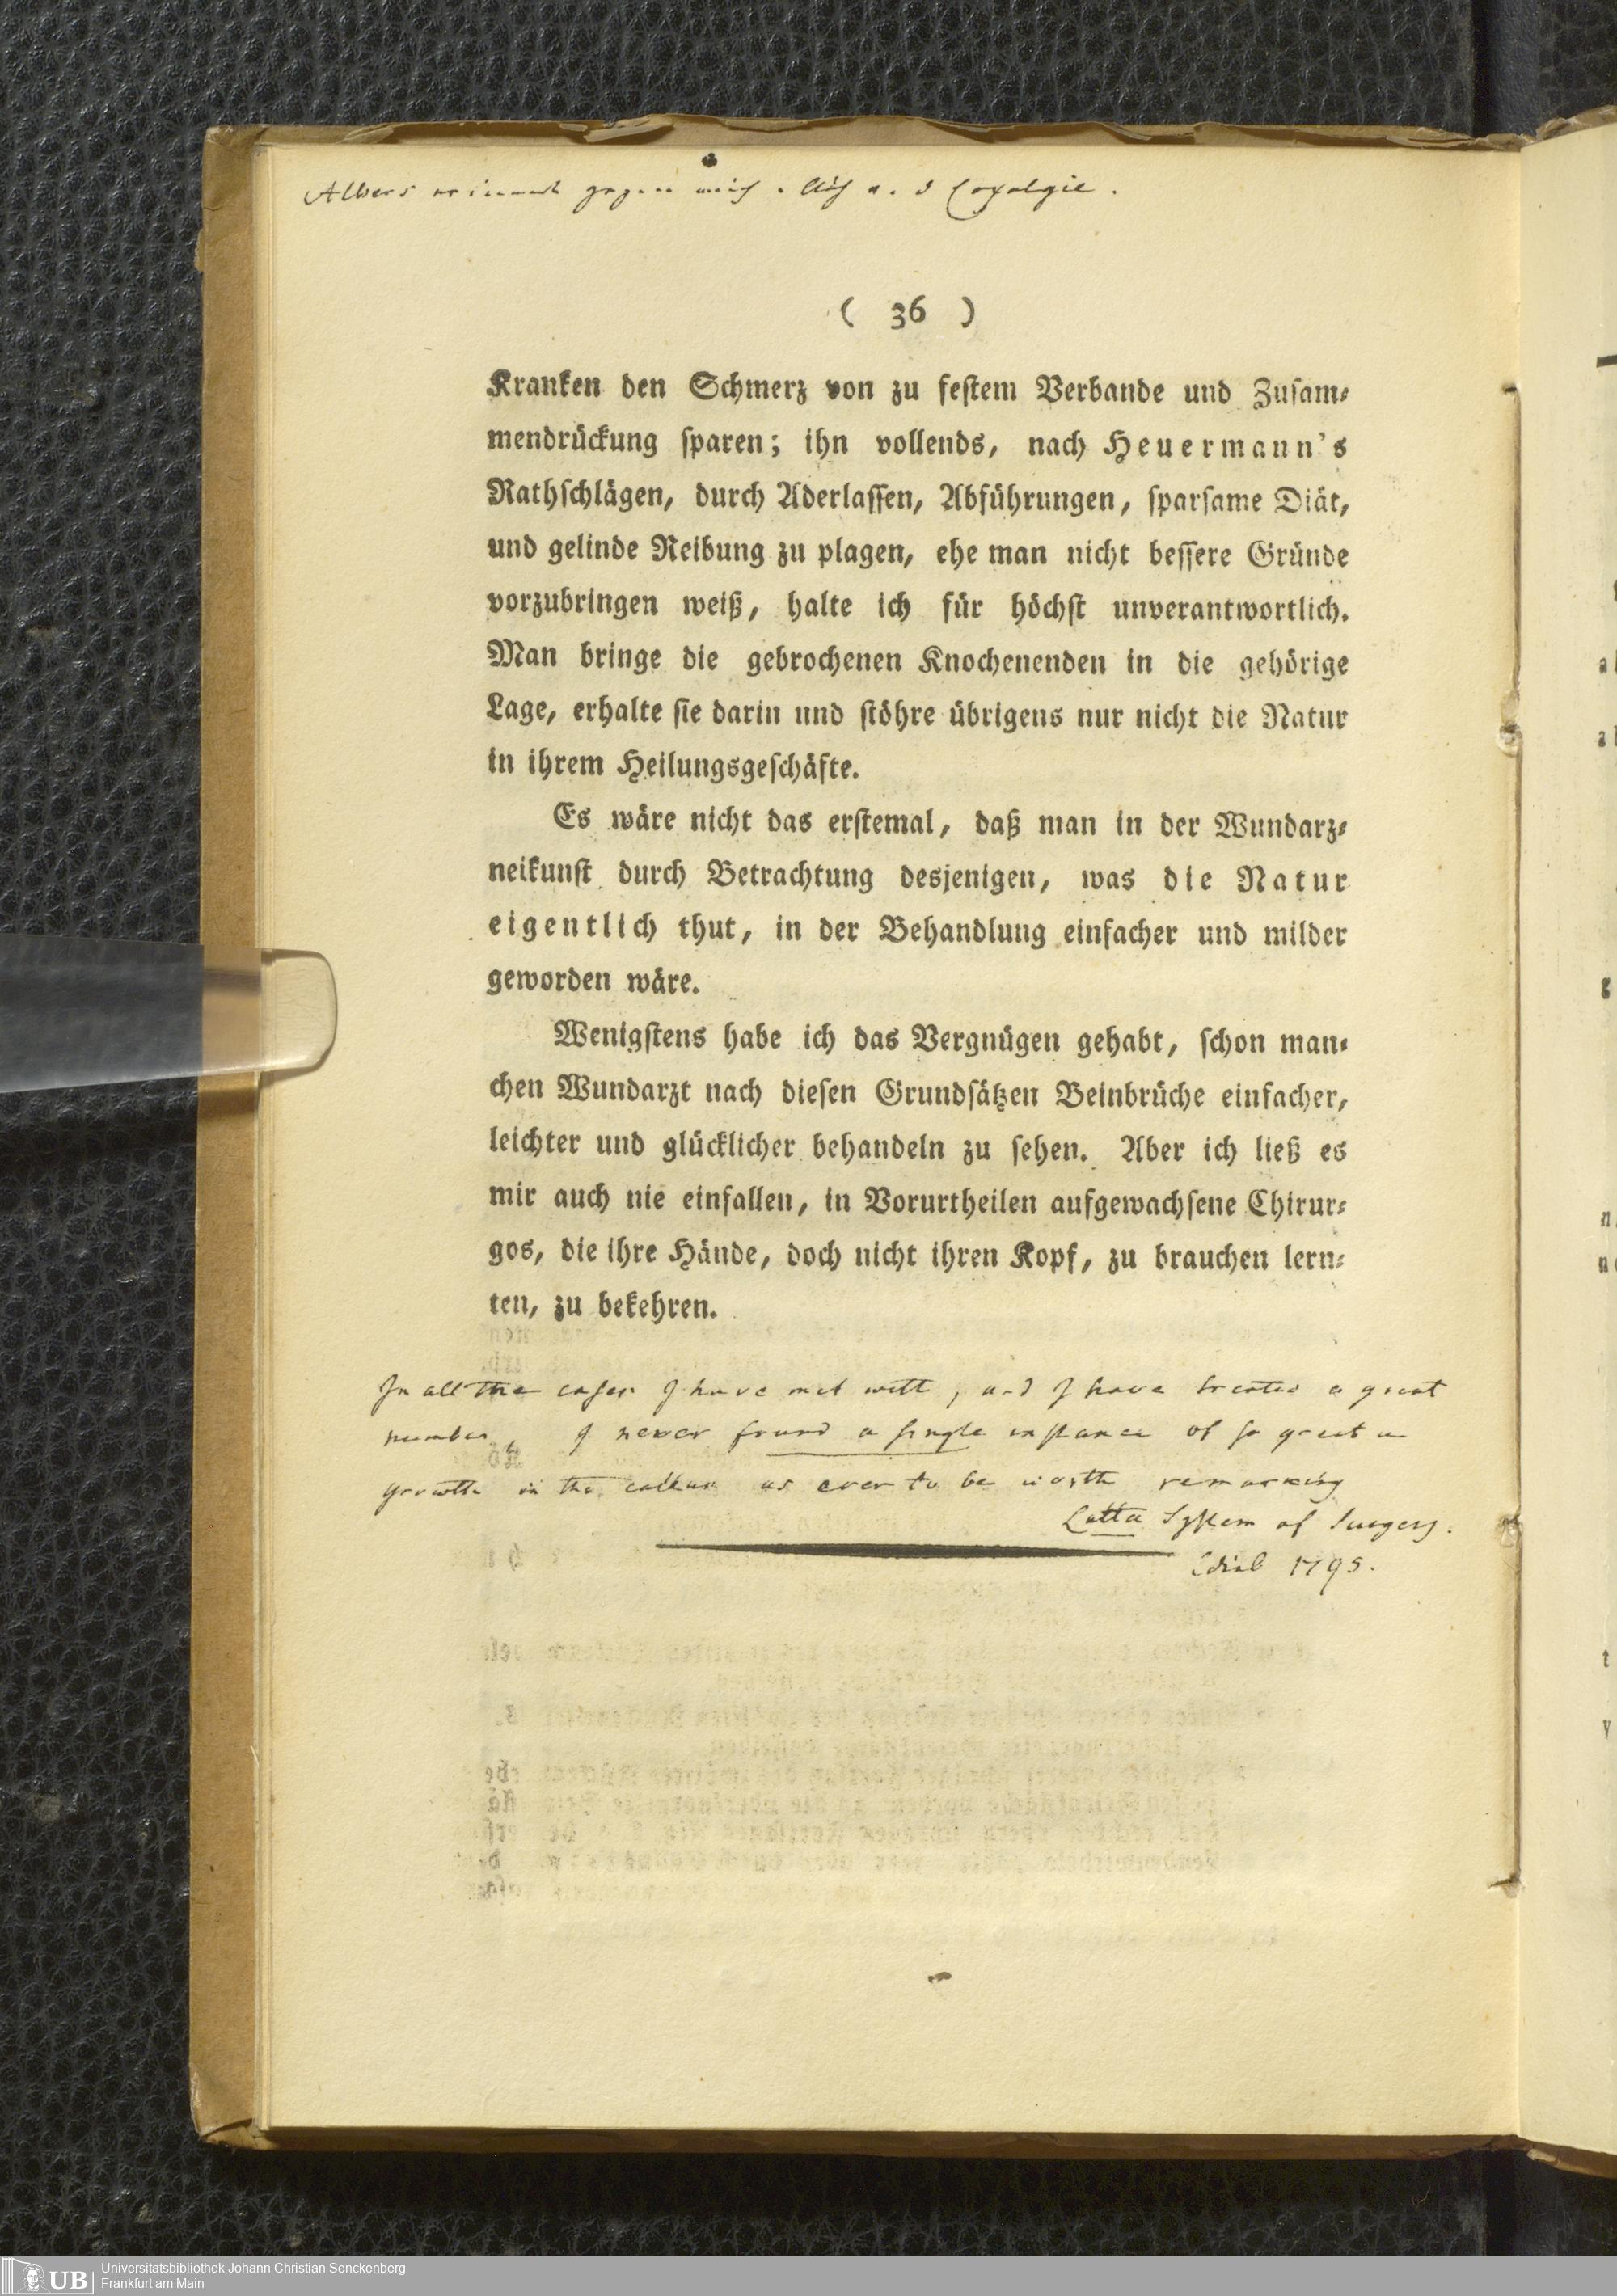 Albers erinnert gegen mich . a. d Coxalgie .
( 36 )
Kranken den Schmerz von zu feſtem Verbande und Zuſam⸗
mendrückung ſparen; ihn vollends, nach Heuermann's
Rathſchlägen, durch Aderlaſſen, Abführungen, ſparſame Diät,
und gelinde Reibung zu plagen, ehe man nicht beſſere Gründe
vorzubringen weiß, halte ich für höchſt unverantwortlich.
Man bringe die gebrochenen Knochenenden in die gehörige
Lage, erhalte ſie darin und ſtöhre übrigens nur nicht die Natur
in ihrem Heilungsgeſchäfte.
Es wäre nicht das erſtemal, daß man in der Wundarz⸗
neikunſt durch Betrachtung desjenigen, was die Natur
eigentlich thut, in der Behandlung einfacher und milder
geworden wäre.
Wenigſtens habe ich das Vergnügen gehabt, ſchon man⸗
chen Wundarzt nach dieſen Grundſätzen Beinbrüche einfacher,
leichter und glücklicher behandeln zu ſehen. Aber ich ließ es
mir auch nie einfallen, in Vorurtheilen aufgewachſene Chirur⸗
gos, die ihre Hände, doch nicht ihren Kopf, zu brauchen lern⸗
ten, zu bekehren.
In all the caſes I have met with, and I have treated a great
number, I never found a ſingle inſtance of ſo great a
growth in the callus as ever to be worth remarking
Latta Syſtem of Surgery.
Edinb 1795.
UB Universitätsbibliothek Johann Christian Senckenberg
Frankfurt am Main